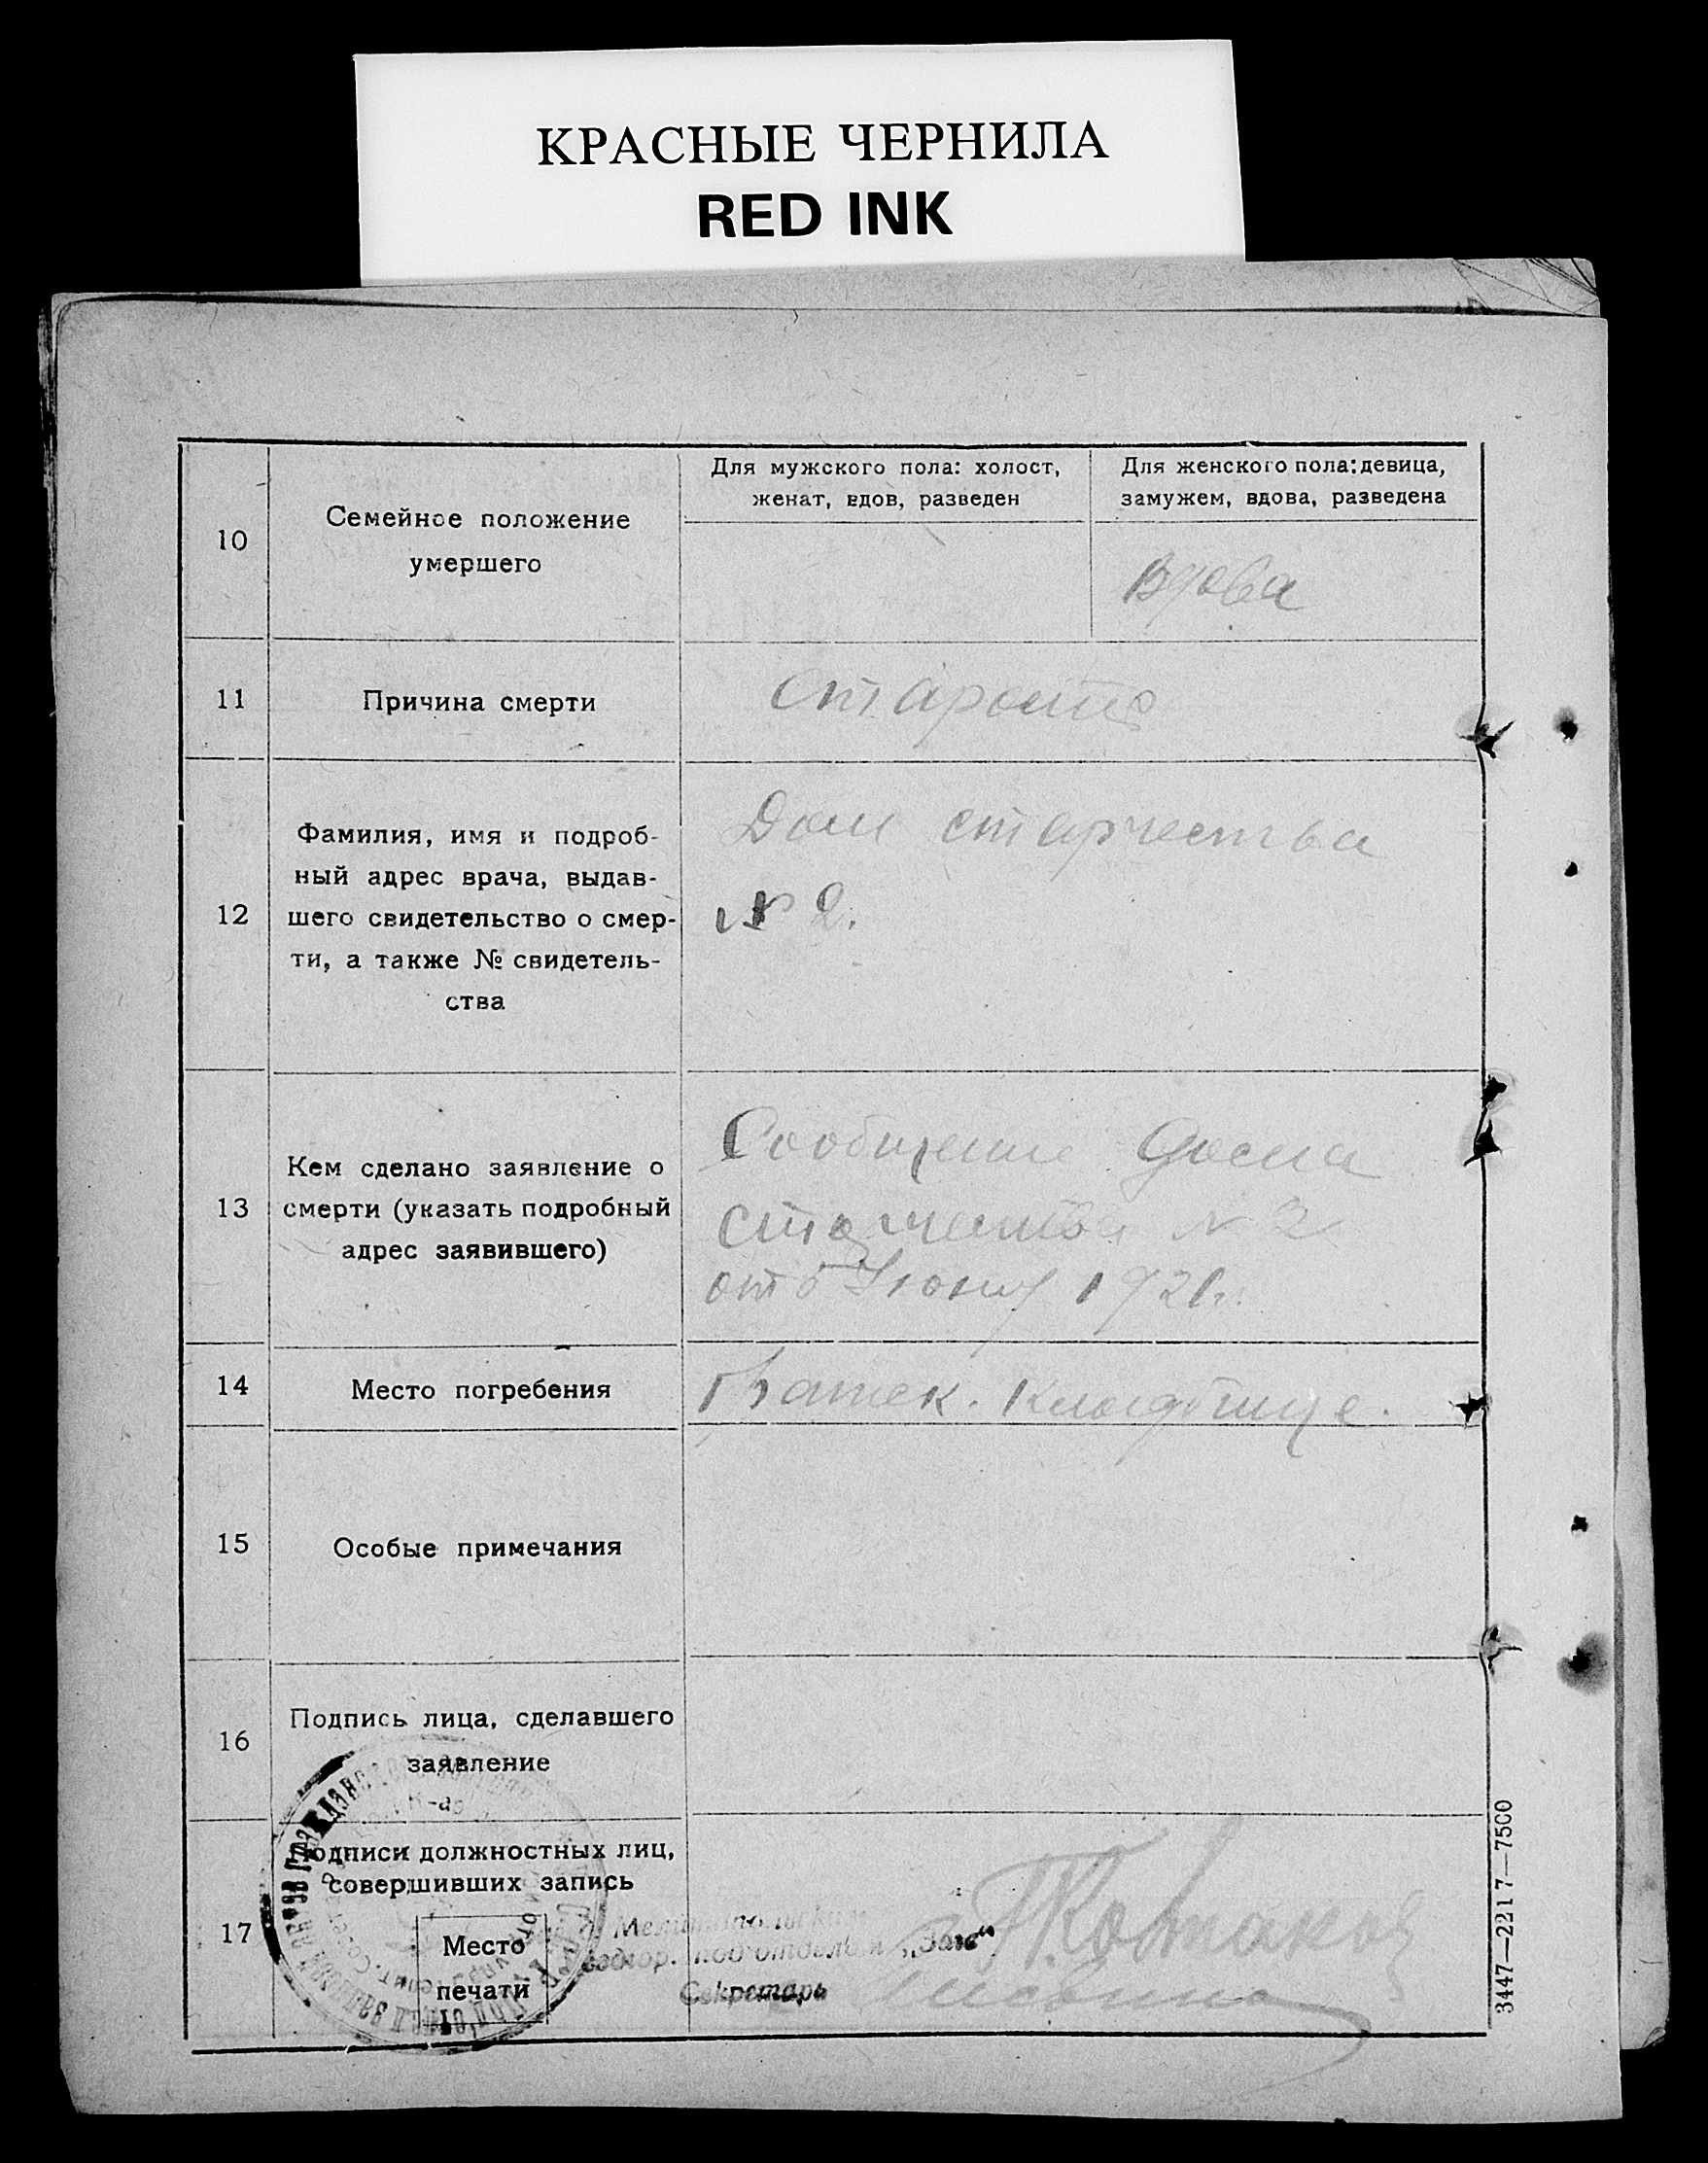 КРАСНЫЕ ЧЕРНИЛА
RED INK
10
Семейное положение
умершего
Для мужского пола: холост,
женат, вдов, разведен
Для женского пола: девица,
замужем, вдова, разведена
Вдова
11
Причина смерти
Старость
12
Фамилия, имя и подроб-
ный адрес врача, выдав-
шего свидетельство о смер-
ти, а также № свидетель-
ства
Дом старчества
№ 2.
13
Кем сделано заявление о
смерти (указать подробный
адрес заявившего)
Сообщение Дома
старчества № 2
от 6 Июня 192
14
Место погребения
кладбище.
15
Особые примечания
16
Подпись лица, сделавшего
заявление
17
Подписи должностных лиц,
совершивших запись
Место
печати
подотделом „Загс"
Секретарь
3447—2217—7500